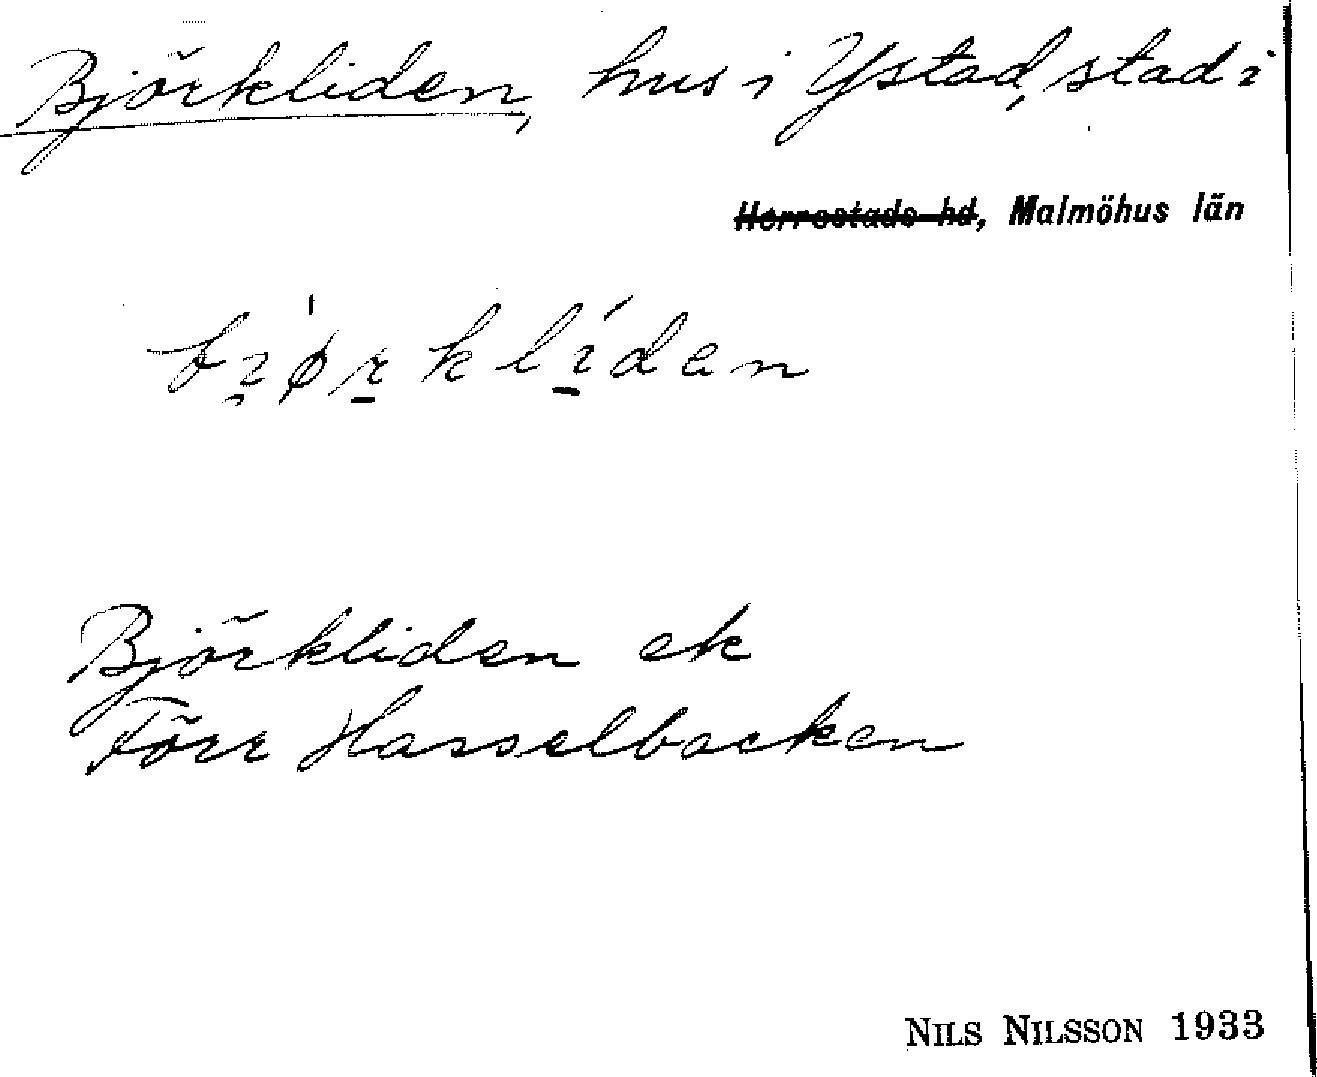 Björkliden, hus i Ystad, stad i
Herrestads hd, Malmöhus län
bi̯ø̍r̠klí̠dən
Björkliden ek
Förr Hasselbacken
NILS NILSSON 1933